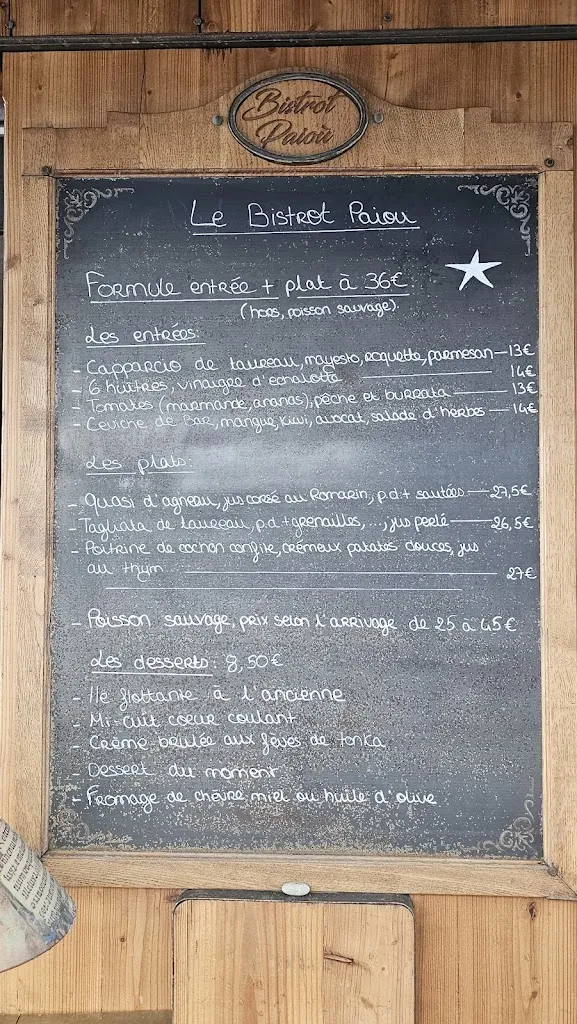 Bistrot
Paiou
Le Bistrot Paiou
Formule entrée + plat à 36€
(hors, poisson sauvage)
Les entrées:
- Capparcio de taureau, mayesto, roquette, parmesan — 13€
- 6 huîtres, vinaigre d'echalotte — 14€
- Tomates (marmande, ananas), pêche et burrata — 13€
- Ceviche de Bar, mangue, kiwi, avocat, salade d'herbes — 14€
Les plats:
- Quasi d'agneau, jus corsé au Romarin, p.d.t sautées — 27,5€
- Tagliata de taureau, p.d.t grenailles, ..., jus perlé — 26,5€
- Poitrine de cochon confite, crémeux patates douces, jus
au thym — 27€
- Poisson sauvage, prix selon l'arrivage de 25 à 45€
Les desserts: 8,50€
- Ile flottante à l'ancienne
- Mi-cuit coeur coulant
- Crème brulée aux fèves de tonka
- Dessert du moment
- Fromage de chèvre miel ou huile d'olive